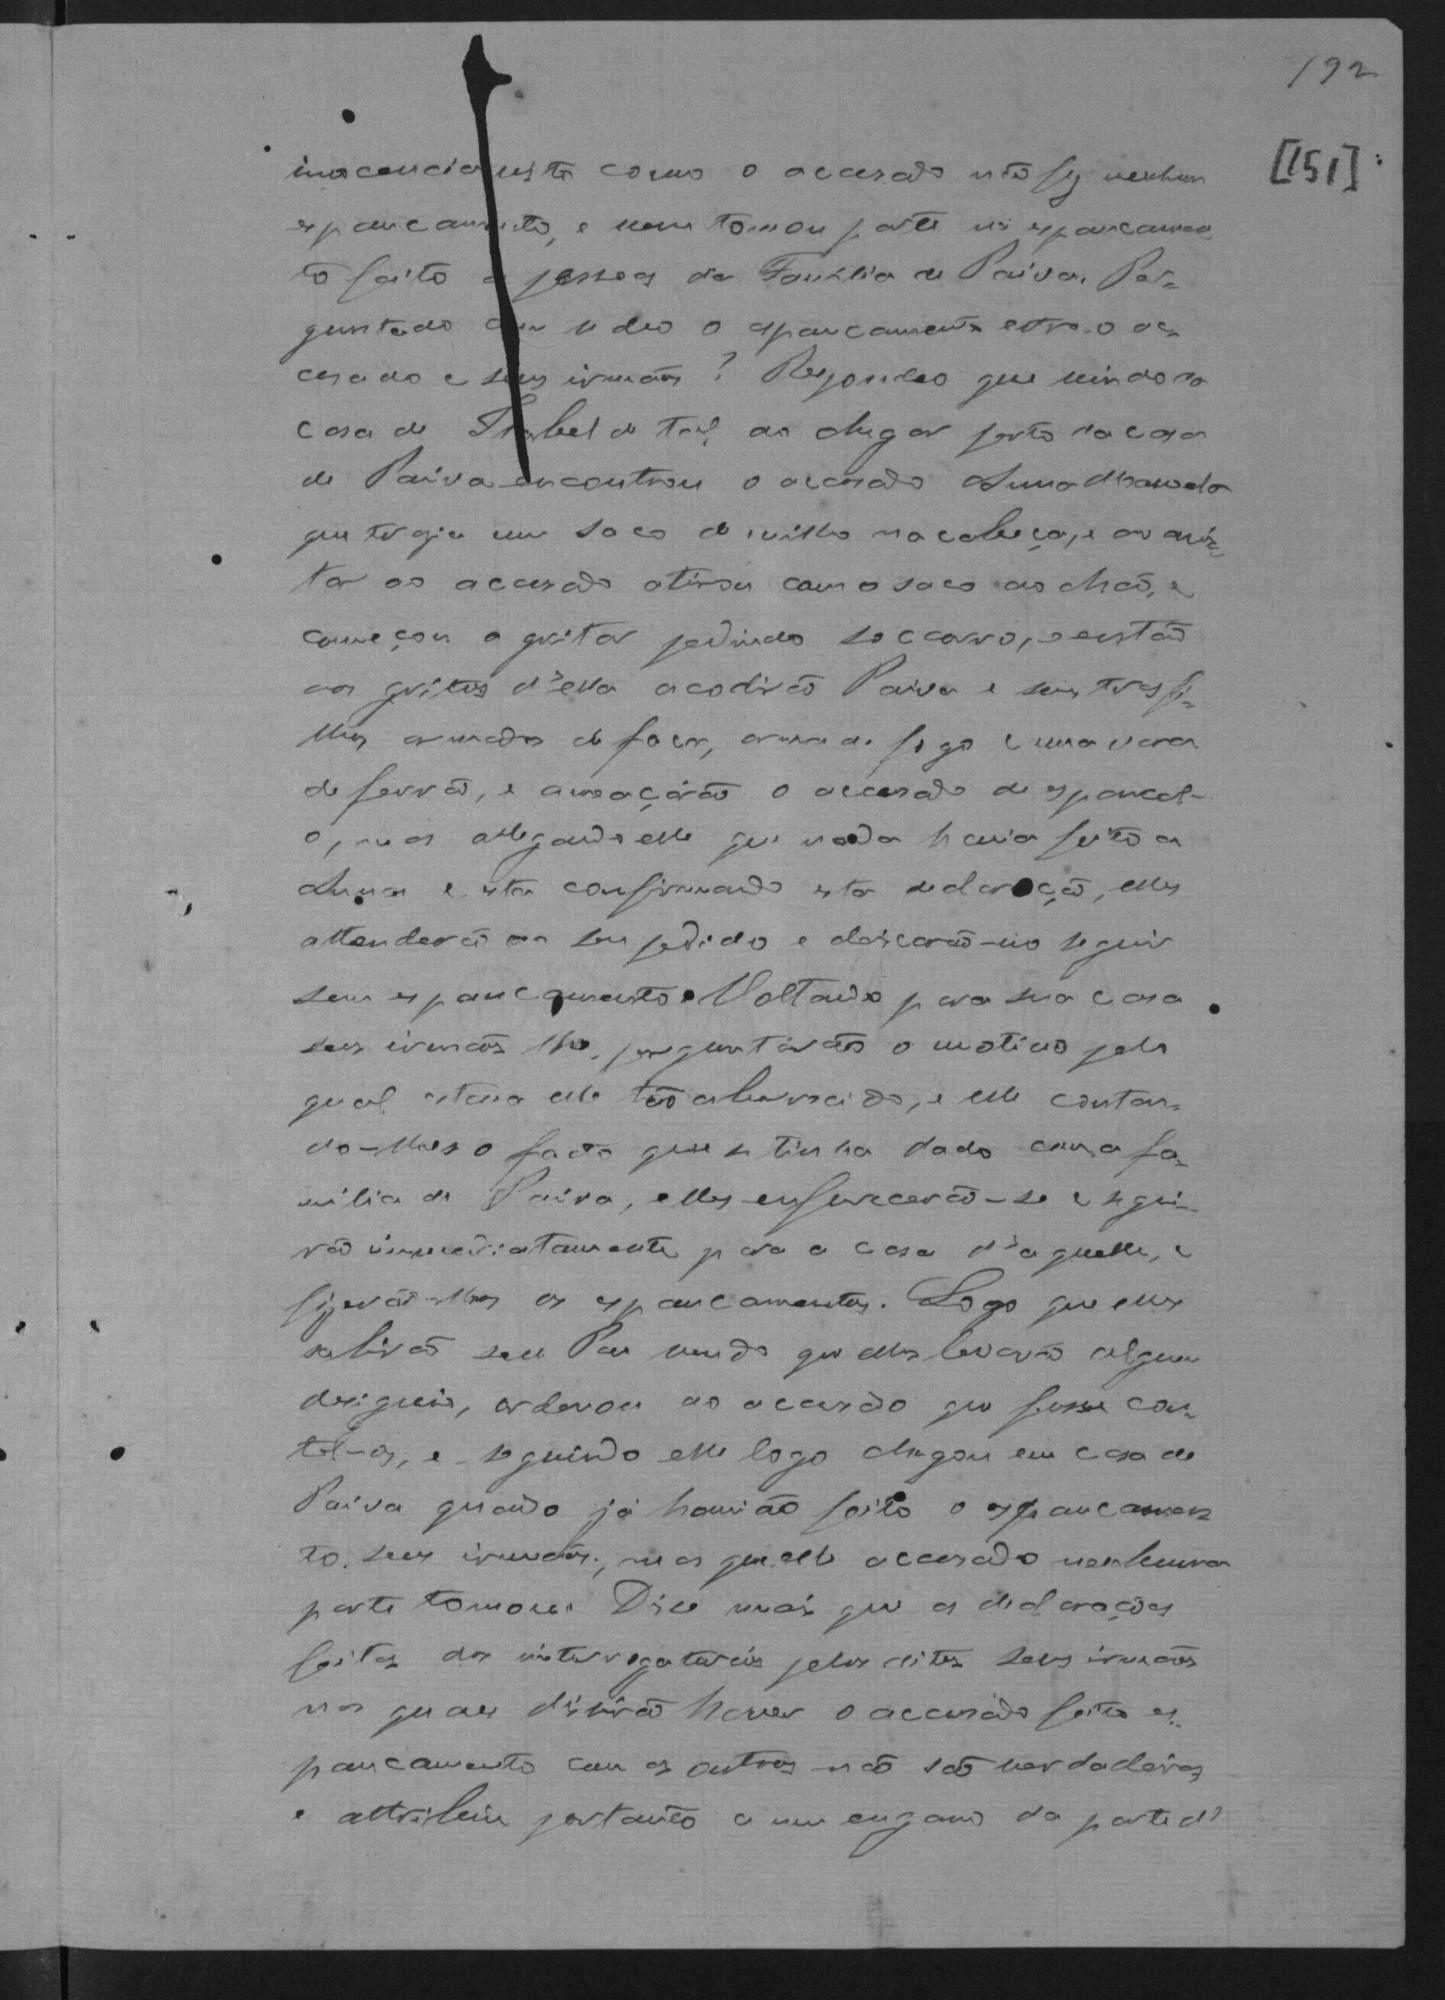 192
[151]
inocencia visto como o accusado não fez nenhum
espancamento, e nem tomou parte no espancamen
to feito a pessoas da Familia de Paiva. Per-
guntado como se deo o espancamento entre o ac
cusado e seus irmãos? Respondeo que vindo da
casa de Isabel de tal, ao chegar perto da casa
de Paiva encontrou o accusado Anna
que trazia um saco de milho na cabeça, e ao avis-
tar ao accusado atirou com o saco ao chão, e
começou a gritar pedindo soccorro, e então
aos gritos d'ella acodirão Paiva e seus tres fi-
lhos armados de foice, arma de fogo e uma vara
de ferrão, e ameaçárão o accusado de espancal-
o, mas allegando elle que nada havia feito a
Anna e esta confirmando esta declaração, elles
attenderão ao seu pedido e deixarão-no seguir
sem espancamento. Voltando para sua casa
seus irmãos lhe perguntárão o motivo pelo
qual estava elle tão aborrecido, e elle contan-
do-lhes o facto que se tinha dado com a fa-
milia de Paiva, elles enfurecerão-se e segui-
rão immediatamente para a casa d'aquelle, e
fizerão-lhes os espancamentos. Logo que elles
sahirão seu Pae vendo que elles levavão algum
designio, ordenou ao accusado que fosse con-
tel-os, e seguindo elle logo chegou em casa de
Paiva quando já havião feito o espancamen
to seus irmãos, mas que elle accusado nenhuma
parte tomou. Disse mais que as declarações
feitas dos interrogatorios pelos ditos seus irmãos
nos quaes disserão haver o accusado feito es-
pancamento com os outros não são verdadeiras
e attribue portanto a um engano da parte d'